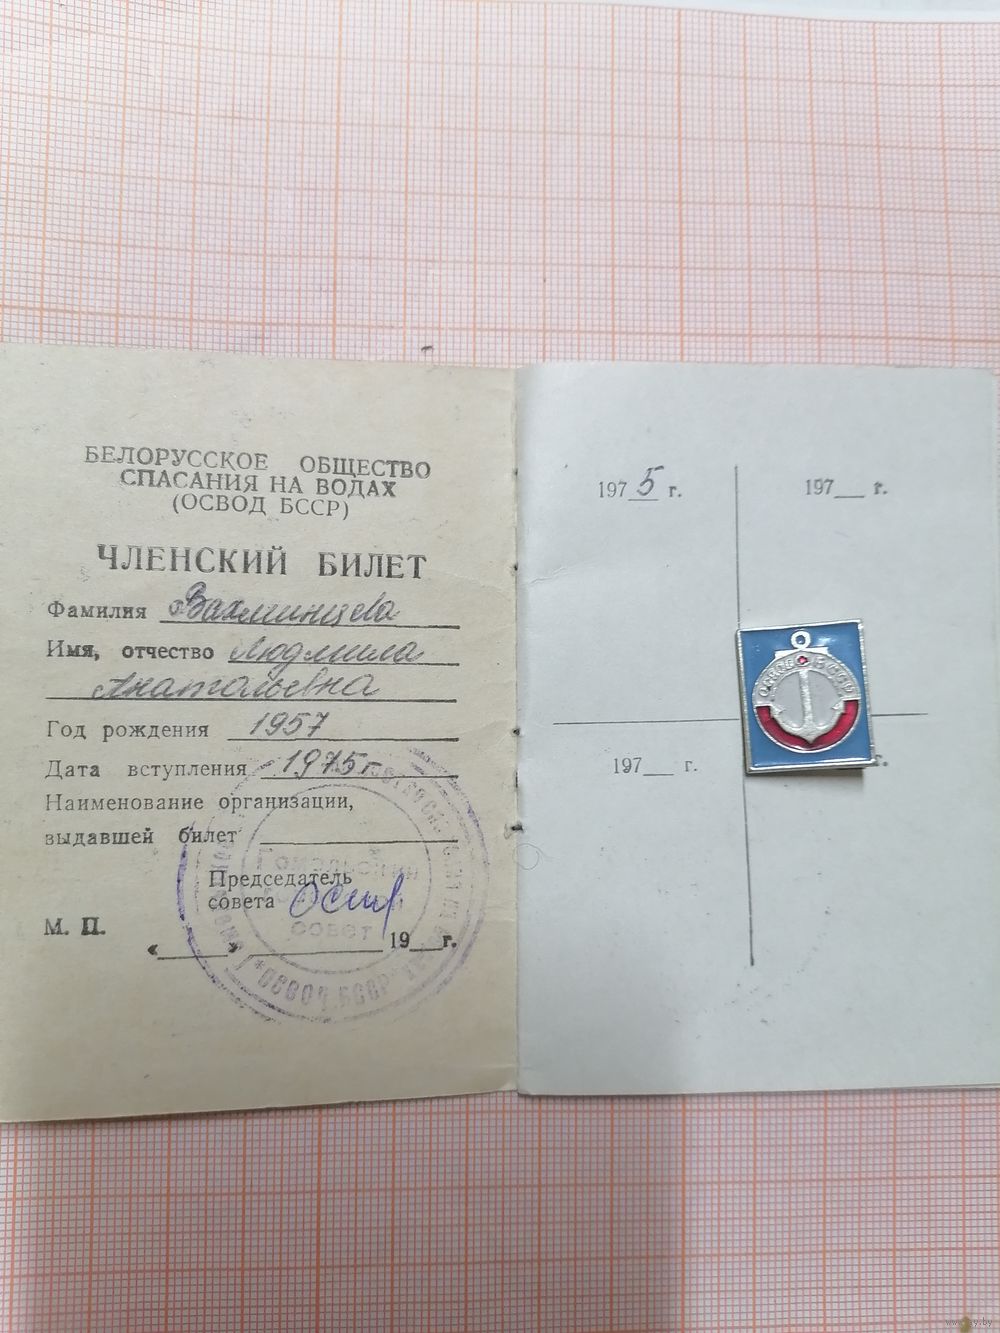 БЕЛОРУССКОЕ ОБЩЕСТВО
СПАСАНИЯ НА ВОДАХ
(ОСВОД БССР)
ЧЛЕНСКИЙ БИЛЕТ
Фамилия Вахминцева
Имя, отчество Людмила
Анатольевна
Год рождения 1957
Дата вступления 1975 г.
Наименование организации,
выдавшей билет
Председатель
совета
М. П.
« » 19 г.
совет
ОСВОД БССР
1975 г.
197 г.
197 г.
г.
ОСВОД БССР